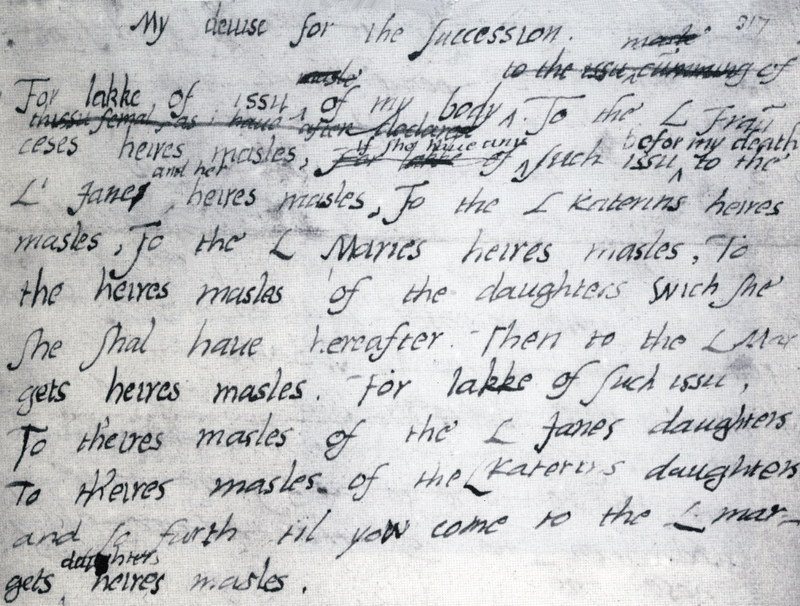 My deuise for the succession. 317
masle to the issu cumming of
masle
For lakke of issu of my body. To the L Frau
thissu femal, as i haue after declared
if she haue any befor my death
ceses heires masles, For lakke of such issu, to the
and her
L' Janes heires masles, To the L Katerins heires
masles, To the L Maries heires masles, To
the heires masles of the daughters wich she
she shal haue hereafter. Then to the L Mar
gets heires masles. For lakke of such issu,
To theires masles of the L Janes daughters
To theires masles of the L Katerins daughters
and so furth til yow come to the L mar-
daughters
gets heires masles.